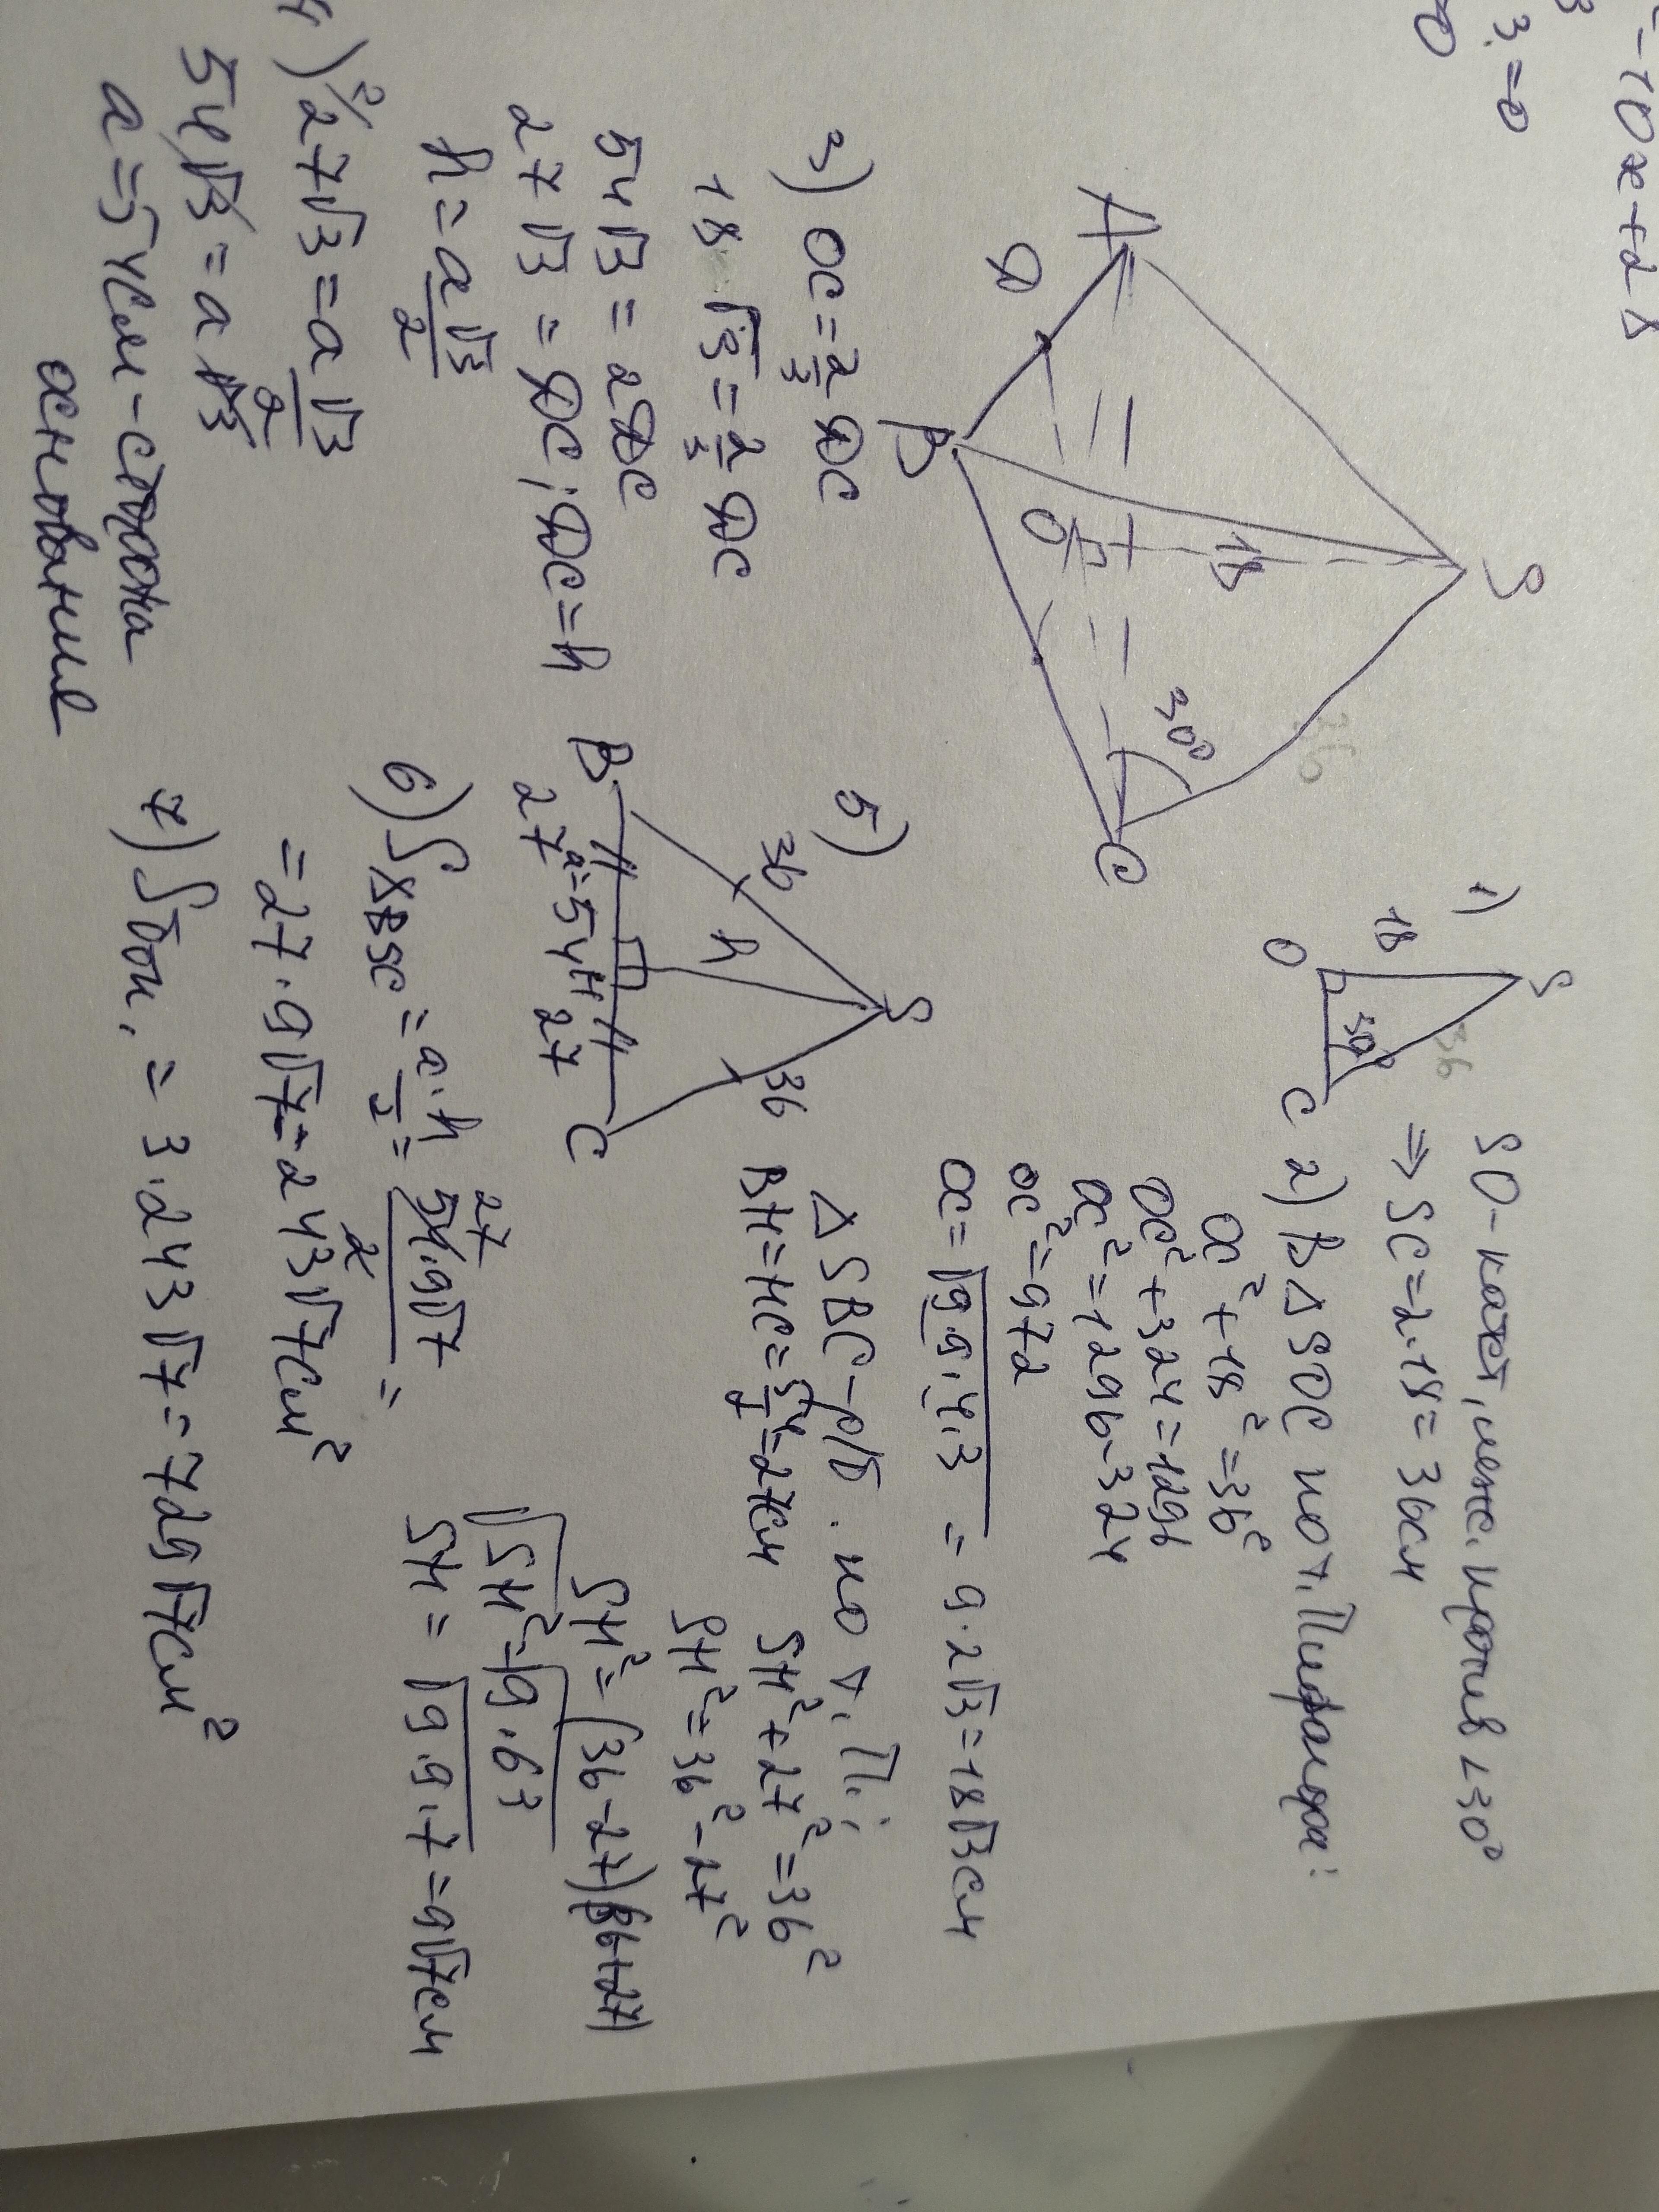 = -10x+28
3
3.=0
0
S
A
D
B
O
C
18
30°
36
1)
S
18
36
O
30°
C
SO-катет, леж. против ∠30°
⇒ SC=2·18=36см
2) В △SOC по т. Пифагора:
OC²+18²=36²
OC²+324=1296
OC²=1296-324
OC²=972
OC=√9·9·4·3 = 9·2√3=18√3см
3) OC=2/3 DC
18·√3=2/3 DC
54√3=2DC
27√3=DC; DC=h
h=a√3/2
4) 2/ 27√3=a√3/2
54√3=a√3
a=54см-сторона
основания
5)
S
36
36
h
B
H
C
27
a=54
27
△SBC-р/б. по т. П.:
BH=HC=54/2=27см
SH²+27²=36²
SH²=36²-27²
SH²=(36-27)(36+27)
√SH²=√9·63
SH=√9·9·7=9√7см
6) S△BSC=a·h/2=54·9√7/2=
27
=27·9√7=243√7см²
7) Sбок.=3·243√7=729√7см²